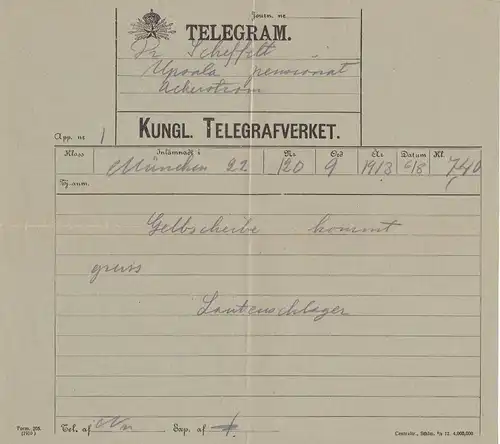 Journ. nr
TELEGRAM.
Dr Scheffelt
Upsala pensionat
Ackerström
App. nr 1
KUNGL. TELEGRAFVERKET.
Klass Inlämnadt i Nr Ord År Datum Kl.
München 22 120 9 1913 6/8 740
Tj.-anm.
Gelbscheibe kommt
gruss
Lautenschlager
Form. 205.
Tel. af Nm Exp. af
Centraltr., Sthlm.